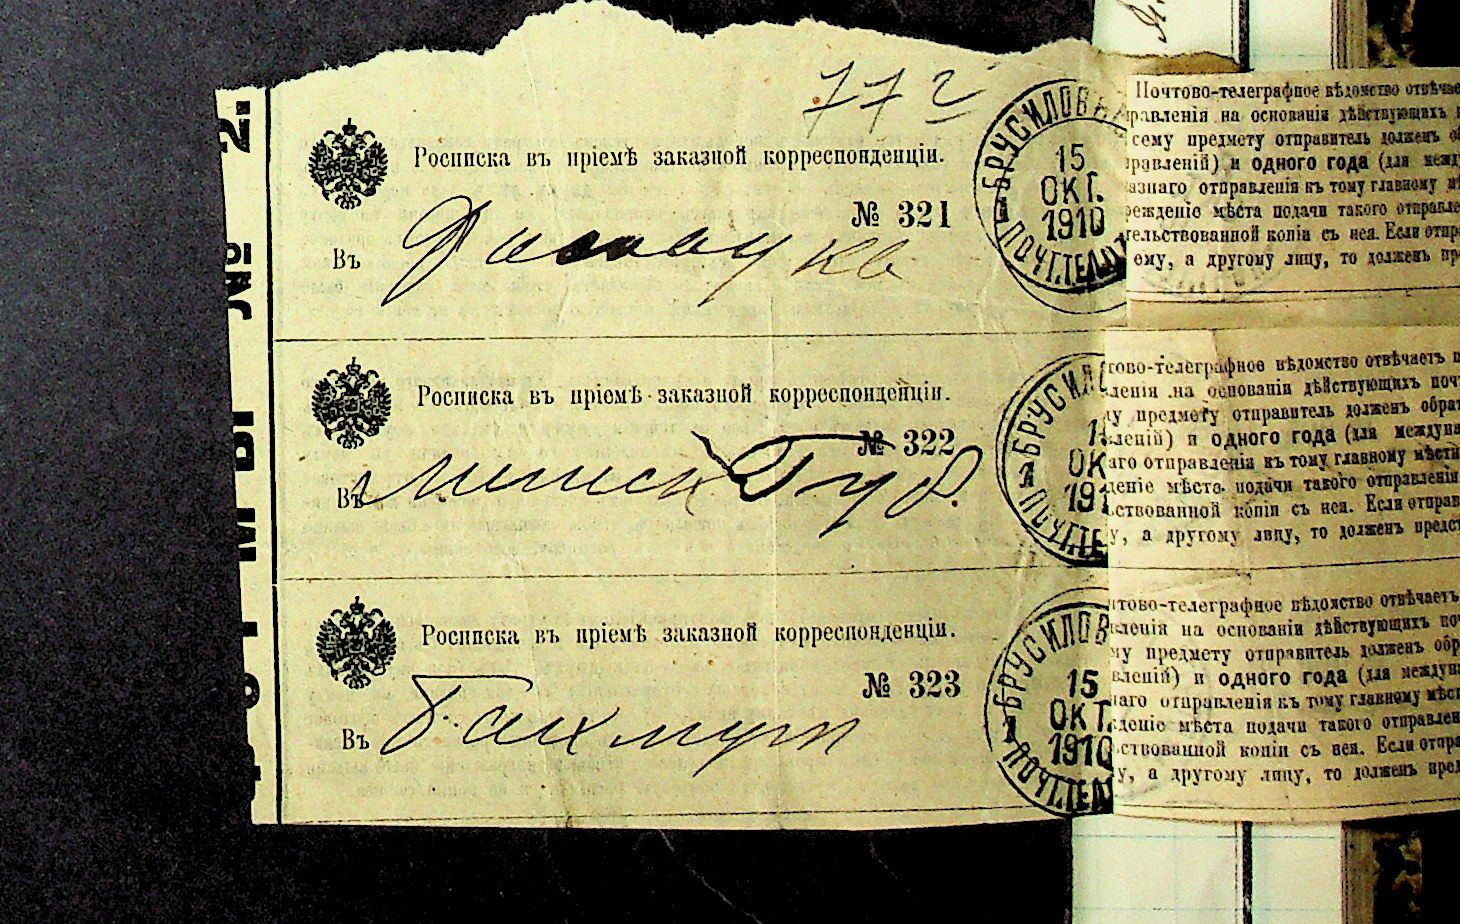 77
Росписка въ пріемѣ заказной корреспонденціи.
№ 321
Въ
БРУСИЛОВ
15
ОКТ.
1910
ПОЧТ.ТЕЛ.
Почтово-телеграфное вѣдомство отвѣчае
равленія на основаніи дѣйствующихъ
сему предмету отправитель долженъ
равленій) и одного года (для межд
азнаго отправленія къ тому главному
режденіе мѣста подачи такого отправле
тельствованной копіи съ нея. Если отпр
ому, а другому лицу, то долженъ пр
Росписка въ пріемѣ заказной корреспонденціи.
№ 322
Въ Минск Губ.
БРУСИЛ
1
ОК
191
ПОЧТ.ТЕ
тово-телеграфное вѣдомство отвѣчаетъ
ленія на основаніи дѣйствующихъ поч
у предмету отправитель долженъ обра
леній) и одного года (для междуна
аго отправленія къ тому главному мѣсти
деніе мѣста подачи такого отправленія
ствованной копіи съ нея. Если отправ
у, а другому лицу, то долженъ предст
Росписка въ пріемѣ заказной корреспонденціи.
№ 323
Въ Бахмут
БРУСИЛОВ
15
ОКТ.
1910
ПОЧТ.ТЕЛ
тово-телеграфное вѣдомство отвѣчаетъ
вленія на основаніи дѣйствующихъ по
му предмету отправитель долженъ обр
вленій) и одного года (для междун
наго отправленія къ тому главному мѣс
деніе мѣста подачи такого отправлен
ствованной копіи съ нея. Если отпра
у, а другому лицу, то долженъ пред